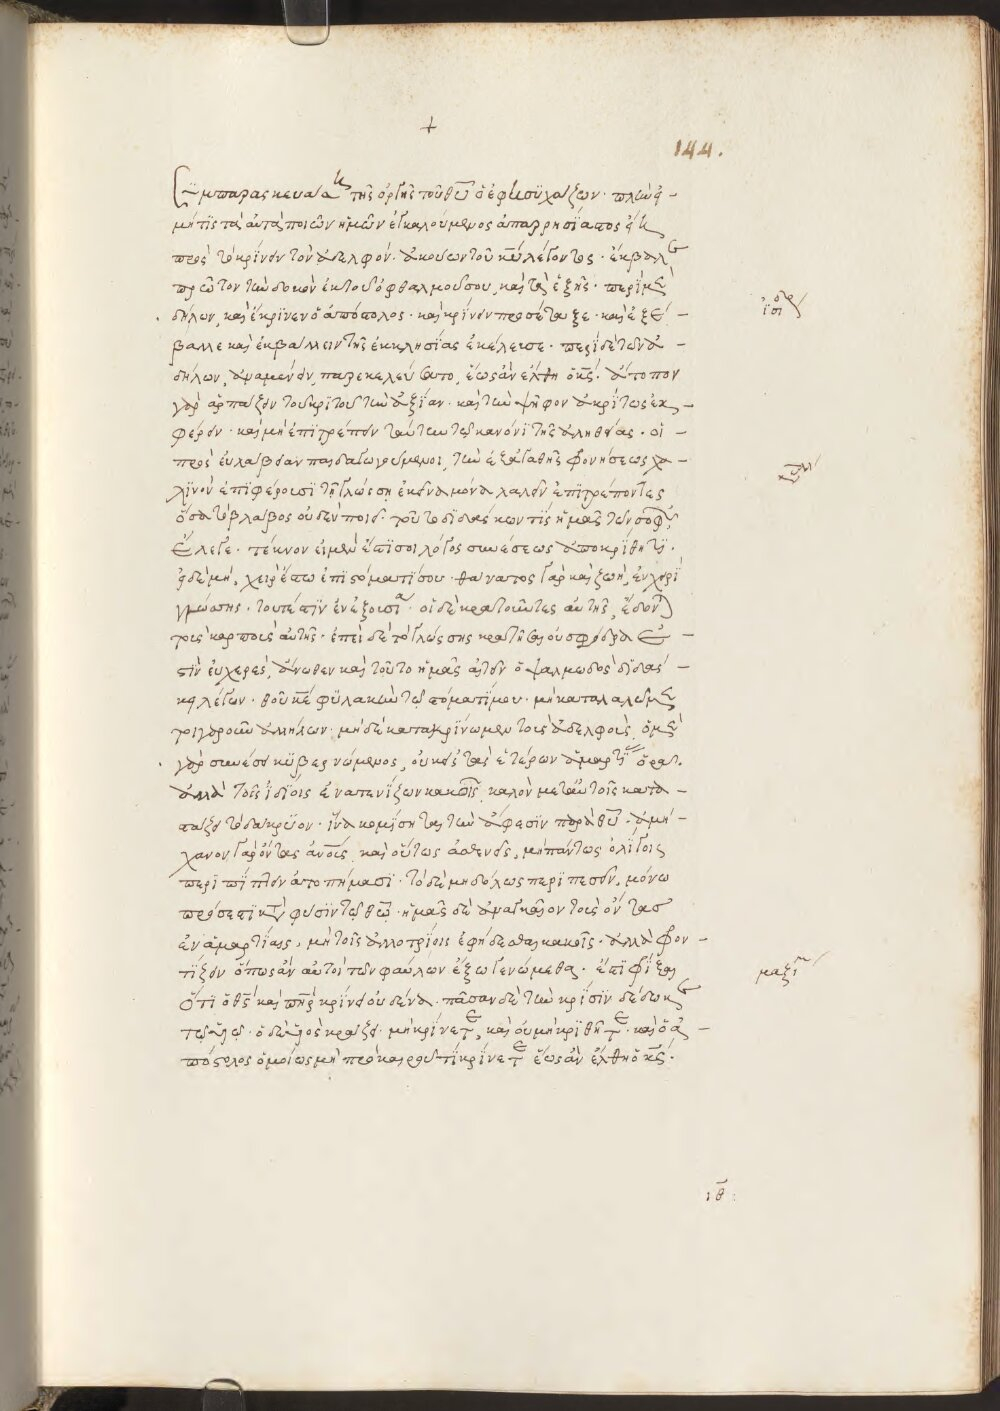 +
144.
τῆς ὀργῆς τοῦ θῦ ὁ ἐφησυχάζων · πλὴν
μήτις τὰ αὐτὰ ποιῶν ἡμῶν ἐγκαλούμενος ἀπαρρησίαστος
πρὸς τὸ κρίνειν τὸν ἀδελφόν · ἀκούων τοῦ κυ λέγοντος · ἔκβαλε
πρῶτον τὴν δοκὸν ἐκ τοῦ ὀφθαλμοῦ σου, καὶ τὰ ἑξῆς · περὶ μὲν
δήλων, καὶ ἔκρινεν ὁ ἀπόστολος · καὶ κρίνειν προσέταξε · καὶ ἐξέ –
βαλλε καὶ ἐκβάλλειν τῆς ἐκκλησίας ἐκέλευσε · περὶ δὲ τῶν ἀ –
δήλων, ἀναμένειν παρεκελεύσατο, ἕως ἂν ἔλθῃ ὁ κς · ἄτοπον
γὰρ ἁρπάζειν τοῦ κριτοῦ τὴν ἀξίαν · καὶ τὴν ψῆφον ἀκρίτως ἐκ –
φέρειν · καὶ μὴ ἐπιτρέπειν ταύτην τῷ κανόνι τῆς ἀληθείας · οἱ –
πρὸς εὐλάβειαν παιδαγωγούμενοι, τὸν ἐξ ἀγαθῆς φρονήσεως χα –
λινὸν ἐπιφέρουσι τῇ γλώσσῃ ἐκεῖνα μόνα λαλεῖν ἐπιτρέποντες
ὅσα τὸ βλάβος οὐδὲν ποιεῖ · τοῦτο διδάσκων τις ἡμᾶς τῶν σοφῶν
ἔλεγε · τέκνον εἰ μὲν ἔστι σοι λόγος συνέσεως ἀποκρίθητι ·
εἰ δὲ μή, χεὶρ ἔστω ἐπὶ στόματί σου · θάνατος γὰρ καὶ ζωὴ, ἐν χειρὶ
γλώσσης · τουτέστιν ἐν ἐξουσίᾳ · οἱ δὲ κρατοῦντες αὐτῆς, ἔδονται
τοὺς καρποὺς αὐτῆς · ἐπεὶ δὲ τὸ γλώσσης κρατῆσαι οὐ σφόδρα ἐ –
στὶν εὐχερές, ἄνωθεν καὶ τοῦτο ἡμᾶς αἰτεῖν ὁ ψαλμῳδὸς διδάσ –
κει λέγων · θοῦ κε φυλακὴν τῷ στόματί μου · μὴ καταλαλῶμεν
τοιγαροῦν ἀλλήλων · μηδὲ κατακρίνωμεν τοὺς ἀδελφούς
γὰρ συνέσει κυβερνώμενος, οὐκ εἰς τὰς ἑτέρων ἁμαρτίας ὁρᾷ ·
ἀλλὰ τοῖς ἰδίοις ἐναπενίζων κακοῖς · καλὸν μετ' αὐτοῖς κατα –
στάζει τὸ δάκρυον · ἵνα κομίσηται τὴν ἄφεσιν παρὰ θῦ · ἀμή –
χανον γὰρ ὄντας ἀνους καὶ οὕτως ἀσθενεῖς, μὴ πάντως ὀλίγοις
περιπίπτειν ἀτοπήμασι · τὸ δὲ μηδόλως περιπεσεῖν, μόνῳ
πρόσεστι κατὰ φύσιν τῷ θῷ · ἡμᾶς δὲ ἀναγκαῖον τοὺς ὄντας
ἐν ἁμαρτίαις, μὴ τοῖς ἀλλοτρίοις ἐφήδεσθαι κακοῖς · ἀλλὰ φρον –
τίζειν ὅπως ἂν αὐτοὶ τῶν φαύλων ἔξω γενώμεθα ·
Ὅτι ὁ θς καὶ πηρ κρίνει οὐδένα · πᾶσαν δὲ τὴν κρίσιν δέδωκε
τῷ υἱῷ · ὁ δὲ υἱὸς κράζει · μὴ κρίνετε, καὶ οὐ μὴ κριθῆτε · καὶ ὁ ἀ –
πόστολος ὁμοίως μὴ πρὸ καιροῦ τι κρίνετε ἕως ἂν ἔλθῃ ὁ κς ·
μαξί
ιθ :